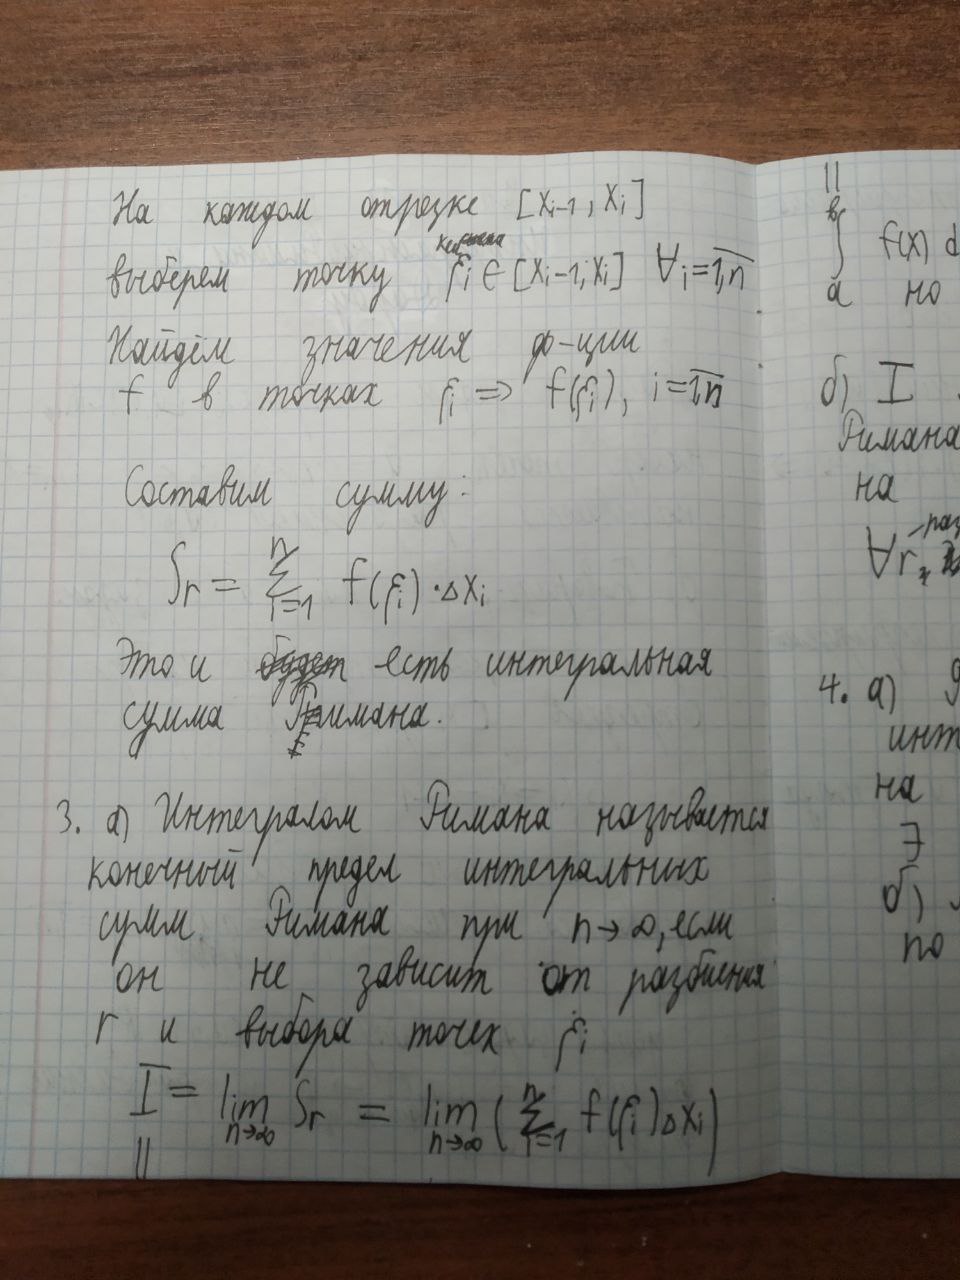 На каждом отрезке [xᵢ₋₁, xᵢ]
выберем точку ξᵢ ∈ [xᵢ₋₁; xᵢ] ∀ᵢ=1,n
Найдём значения ф-ции
f в точках ξᵢ => f(ξᵢ), i=1,n
Составим сумму:
Sr = Σ f(ξᵢ)·Δxᵢ
n
i=1
Это и будет есть интегральная
сумма Римана.
3. а) Интегралом Римана называется
конечный предел интегральных
сумм Римана при n→∞, если
он не зависит от разбиения
r и выбора точек ξᵢ
I = lim Sr = lim ( Σ f(ξᵢ)Δxᵢ)
n→∞ n→∞ n i=1
||
||
в
∫ f(x) d
а но
б) I
Римана
на
∀r раз
4. а)
инт
на
∃
б)
по